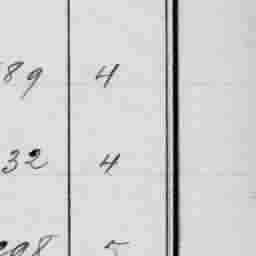 89 4
32 4
298 5